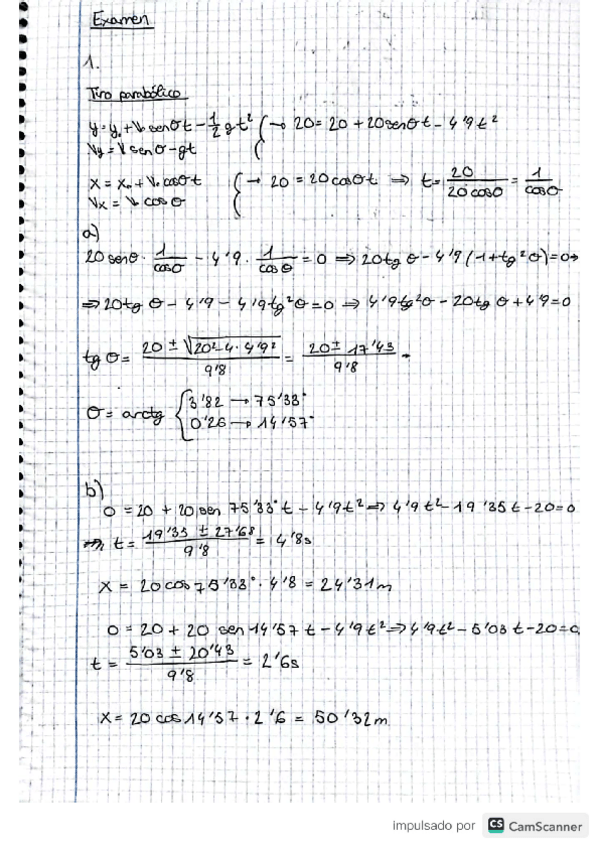 Examen
1.
Tiro parabólico
y = y₀ + V₀ senθ t - 1/2 g t² { → 20 = 20 + 20 senθ t - 4'9 t²
Vy = V senθ - gt
x = x₀ + V₀ cosθ t { → 20 = 20 cosθ t ⇒ t = 20/(20 cosθ) = 1/cosθ
Vx = V₀ cos θ
a)
20 senθ · 1/cosθ - 4'9 · 1/cosθ = 0 ⇒ 20 tg θ - 4'9 (1 + tg² θ) = 0 ⇒
⇒ 20 tg θ - 4'9 - 4'9 tg² θ = 0 ⇒ 4'9 tg² θ - 20 tg θ + 4'9 = 0
tg θ = (20 ± √(20² - 4 · 4'9²))/9'8 = (20 ± 17'43)/9'8
θ = arctg { 3'82 → 75'33°
0'26 → 14'57°
b)
0 = 20 + 20 sen 75'33° t - 4'9 t² ⇒ 4'9 t² - 19'35 t - 20 = 0
⇒ t = (19'35 ± 27'68)/9'8 = 4'8s
x = 20 cos 75'33° · 4'8 = 24'31 m
0 = 20 + 20 sen 14'57 t - 4'9 t² ⇒ 4'9 t² - 5'03 t - 20 = 0
t = (5'03 ± 20'43)/9'8 = 2'6s
x = 20 cos 14'57 · 2'6 = 50'32 m
impulsado por CS CamScanner